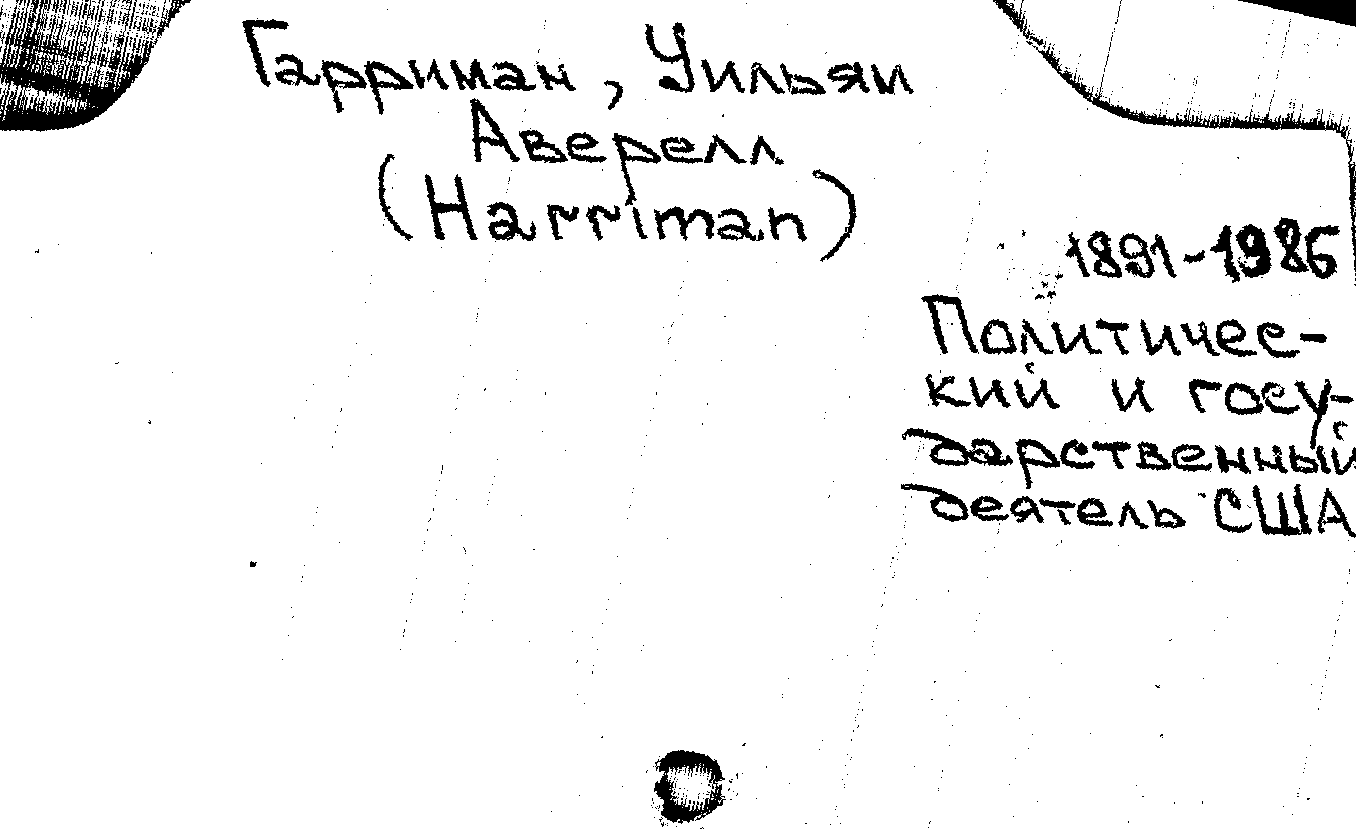 Гарриман, Уильям
Аверелл
(Harriman)
1891-1986
Политичес-
кий и госу-
дарственный
деятель США